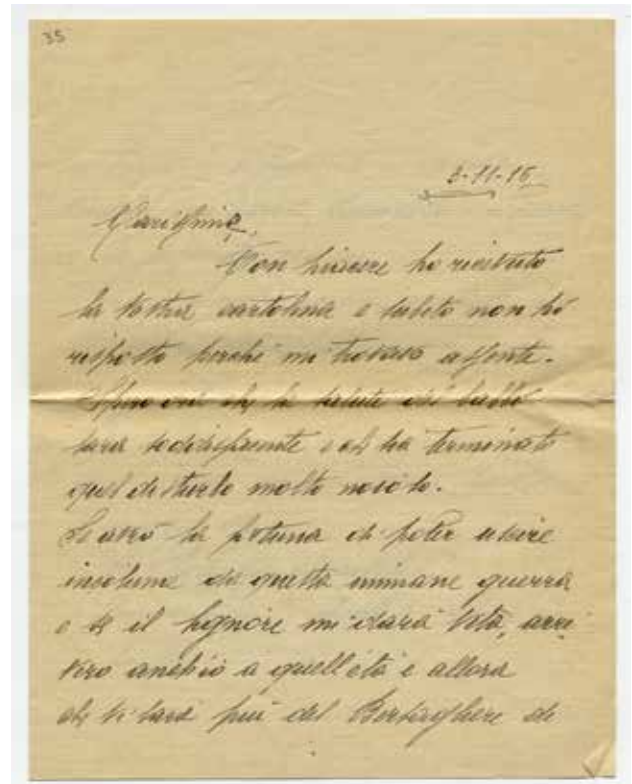 35
3-11-15
Carissime,
Con piacere ho ricevuto
la vostra cartolina e subito non hò
risposto perchè mi trovavo assente.
Spero ora che la salute del babbo
sarà soddisfacente e che ha terminato
quel disturbo molto noioso.
Se avrò la fortuna di poter uscire
incolume da questa immane guerra
e se il Signore mi darà vita, arri
verò anch'io a quell'età e allora
che ci sarà più del Bersagliere di